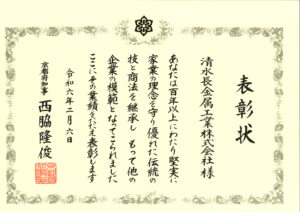 表彰状
清水長金属工業株式会社様
あなたは百年以上にわたり堅実に
家業の理念を守り優れた伝統の
技と商法を継承し もって他の
企業の模範となってこられました
ここにその業績をたたえ表彰します
令和六年二月六日
京都府知事 西脇隆俊